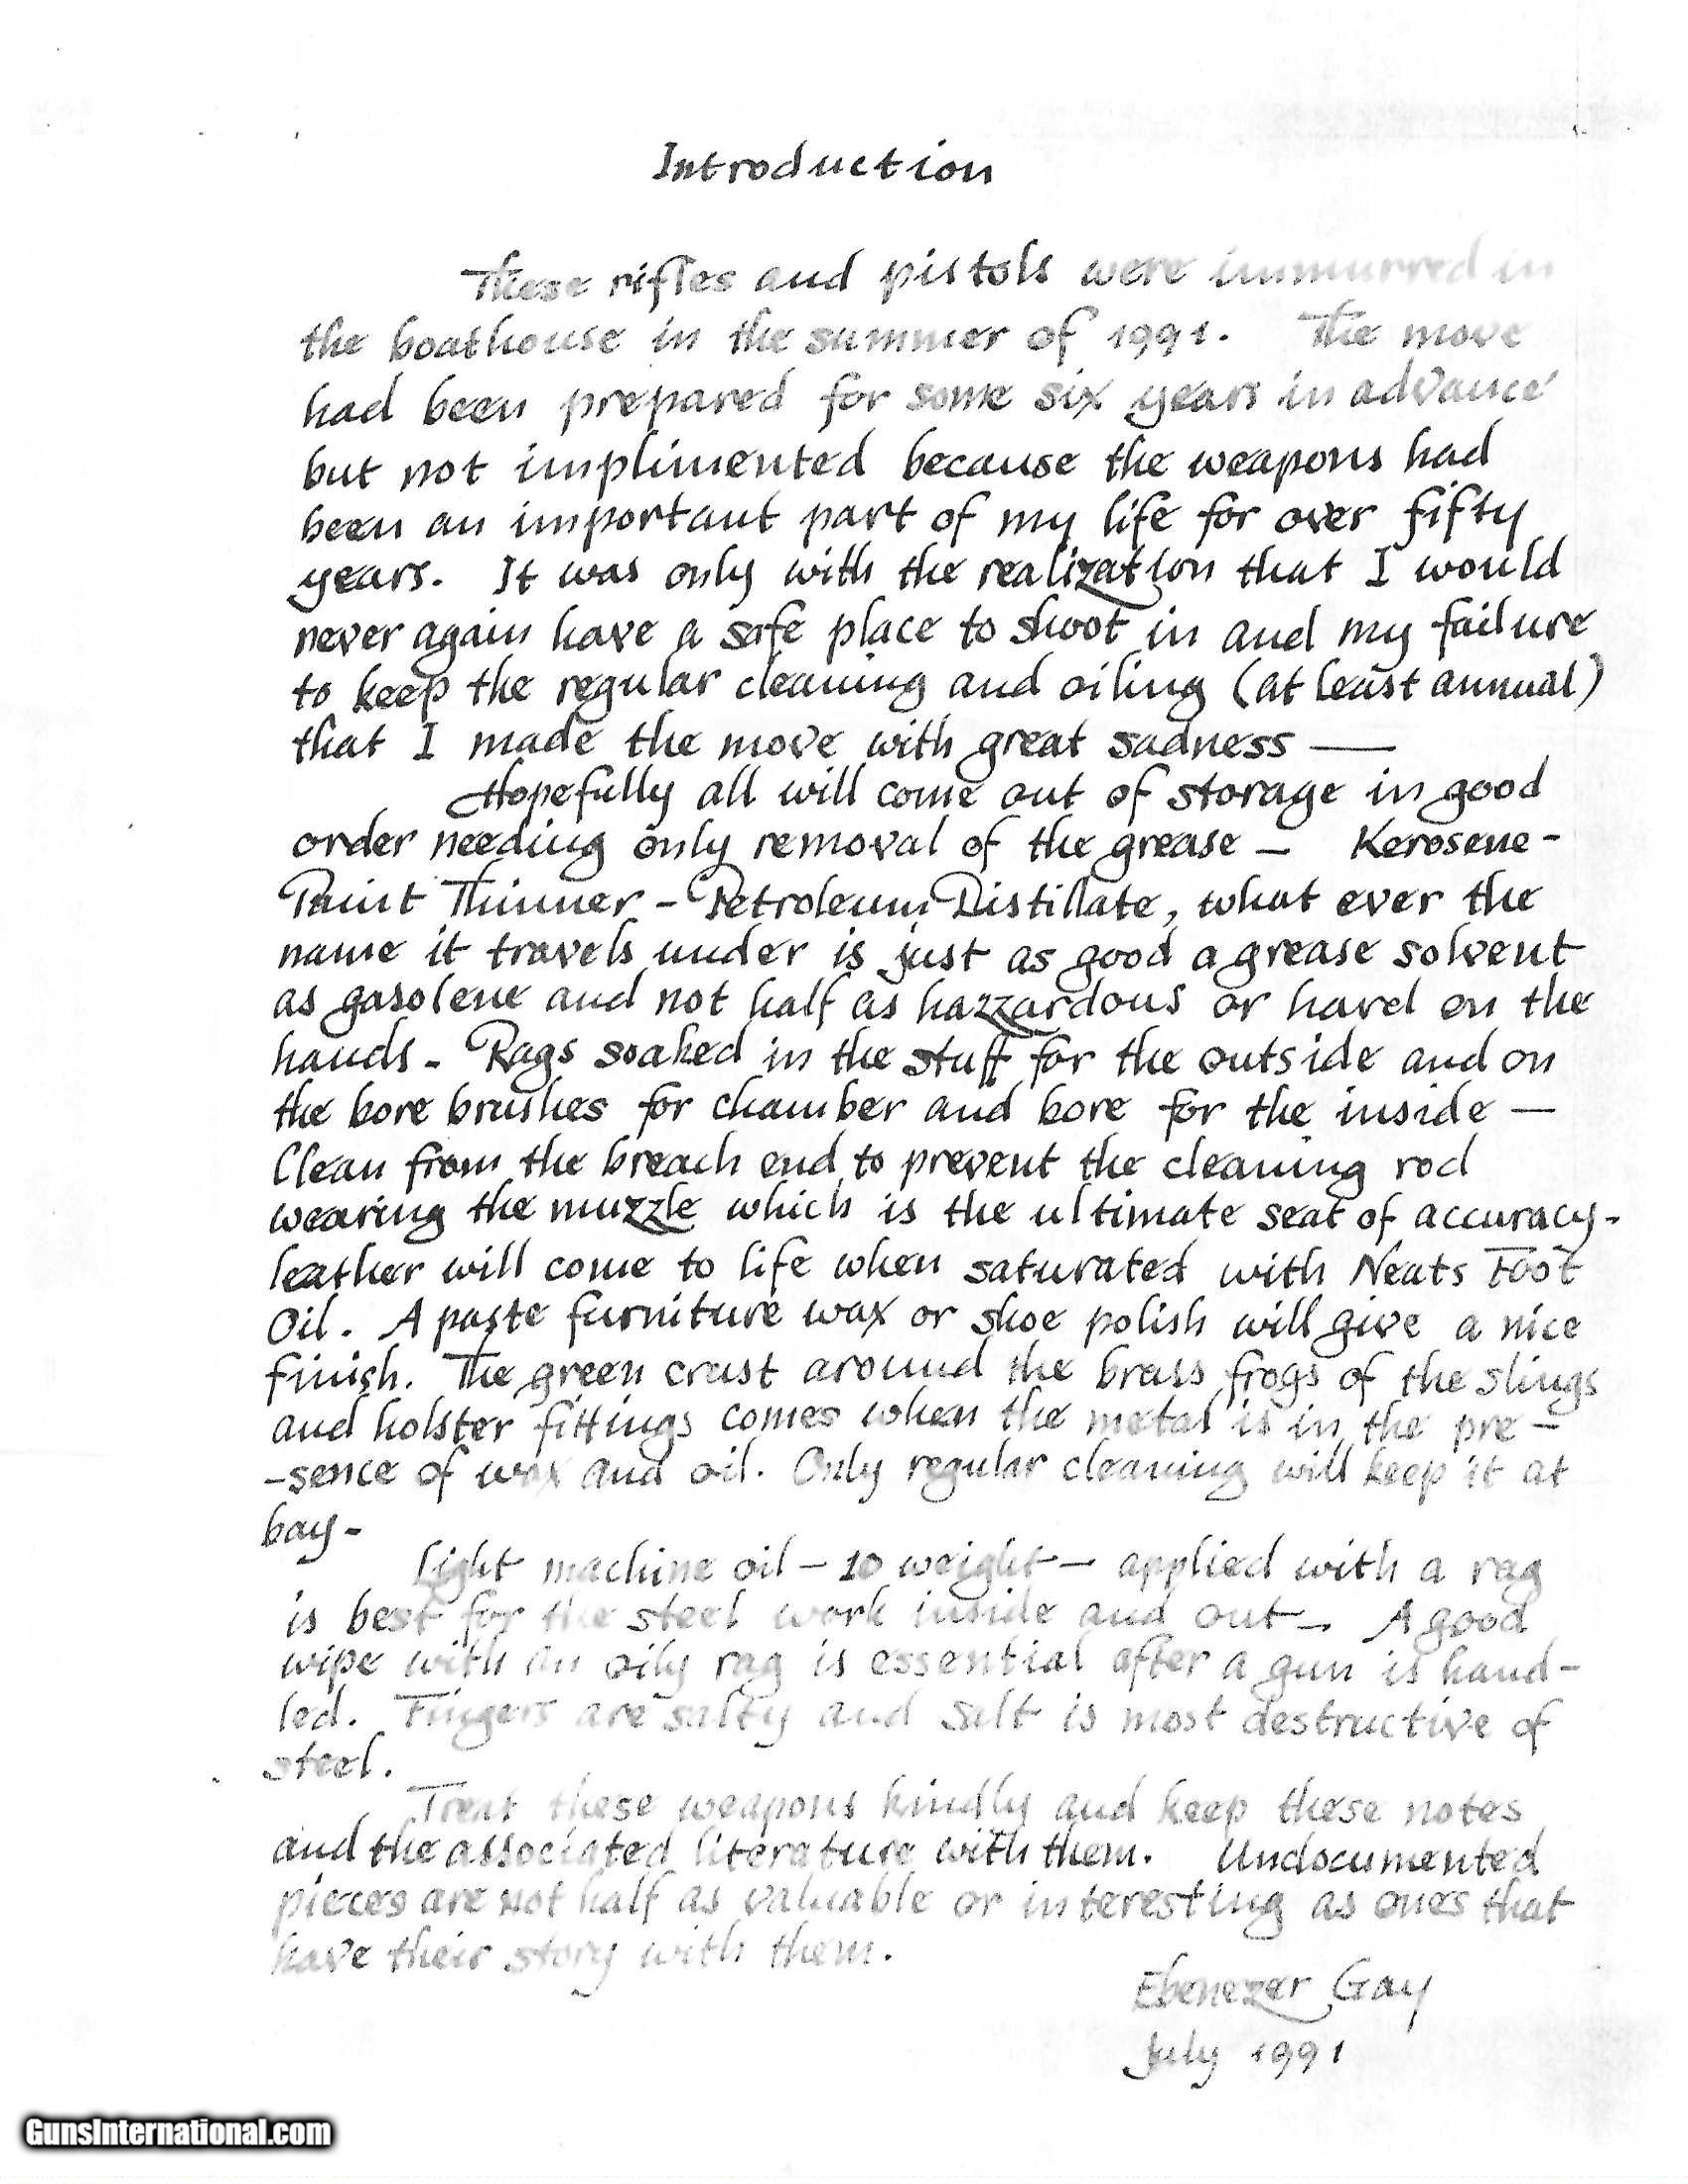 Introduction
These rifles and pistols were immurred in
the boathouse in the summer of 1991. The move
had been prepared for some six years in advance
but not implimented because the weapons had
been an important part of my life for over fifty
years. It was only with the realization that I would
never again have a safe place to shoot in and my failure
to keep the regular cleaning and oiling (at least annual)
that I made the move with great sadness —
Hopefully all will come out of storage in good
order needing only removal of the grease — Kerosene -
Paint Thinner - Petroleum Distillate, what ever the
name it travels under is just as good a grease solvent
as gasolene and not half as hazzardous or hard on the
hands - Rags soaked in the stuff for the outside and on
the bore brushes for chamber and bore for the inside —
Clean from the breach end to prevent the cleaning rod
wearing the muzzle which is the ultimate seat of accuracy -
leather will come to life when saturated with Neats Foot
Oil. A paste furniture wax or shoe polish will give a nice
finish. The green crust around the brass frogs of the slings
and holster fittings comes when the metal is in the pre -
-sence of wax and oil. Only regular cleaning will keep it at
bay -
Light machine oil - 10 weight - applied with a rag
is best for the steel work inside and out - A good
wipe with an oily rag is essential after a gun is hand-
led. Fingers are salty and salt is most destructive of
steel.
Treat these weapons kindly and keep these notes
and the associated literature with them. Undocumented
pieces are not half as valuable or interesting as ones that
have their story with them.
Ebenezer Gay
July 1991
GunsInternational.com